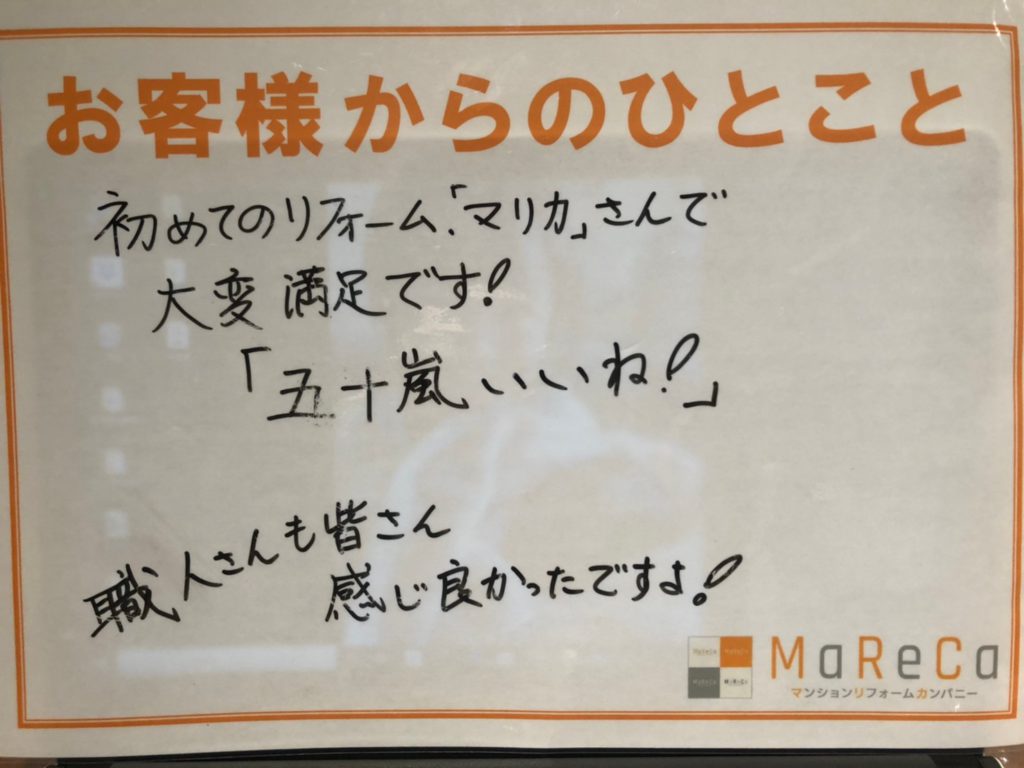 お客様からのひとこと
初めてのリフォーム、「マリカ」さんで
大変満足です!
「五十嵐いいね!」
職人さんも皆さん
感じ良かったですよ!
MaReCa
マンションリフォームカンパニー